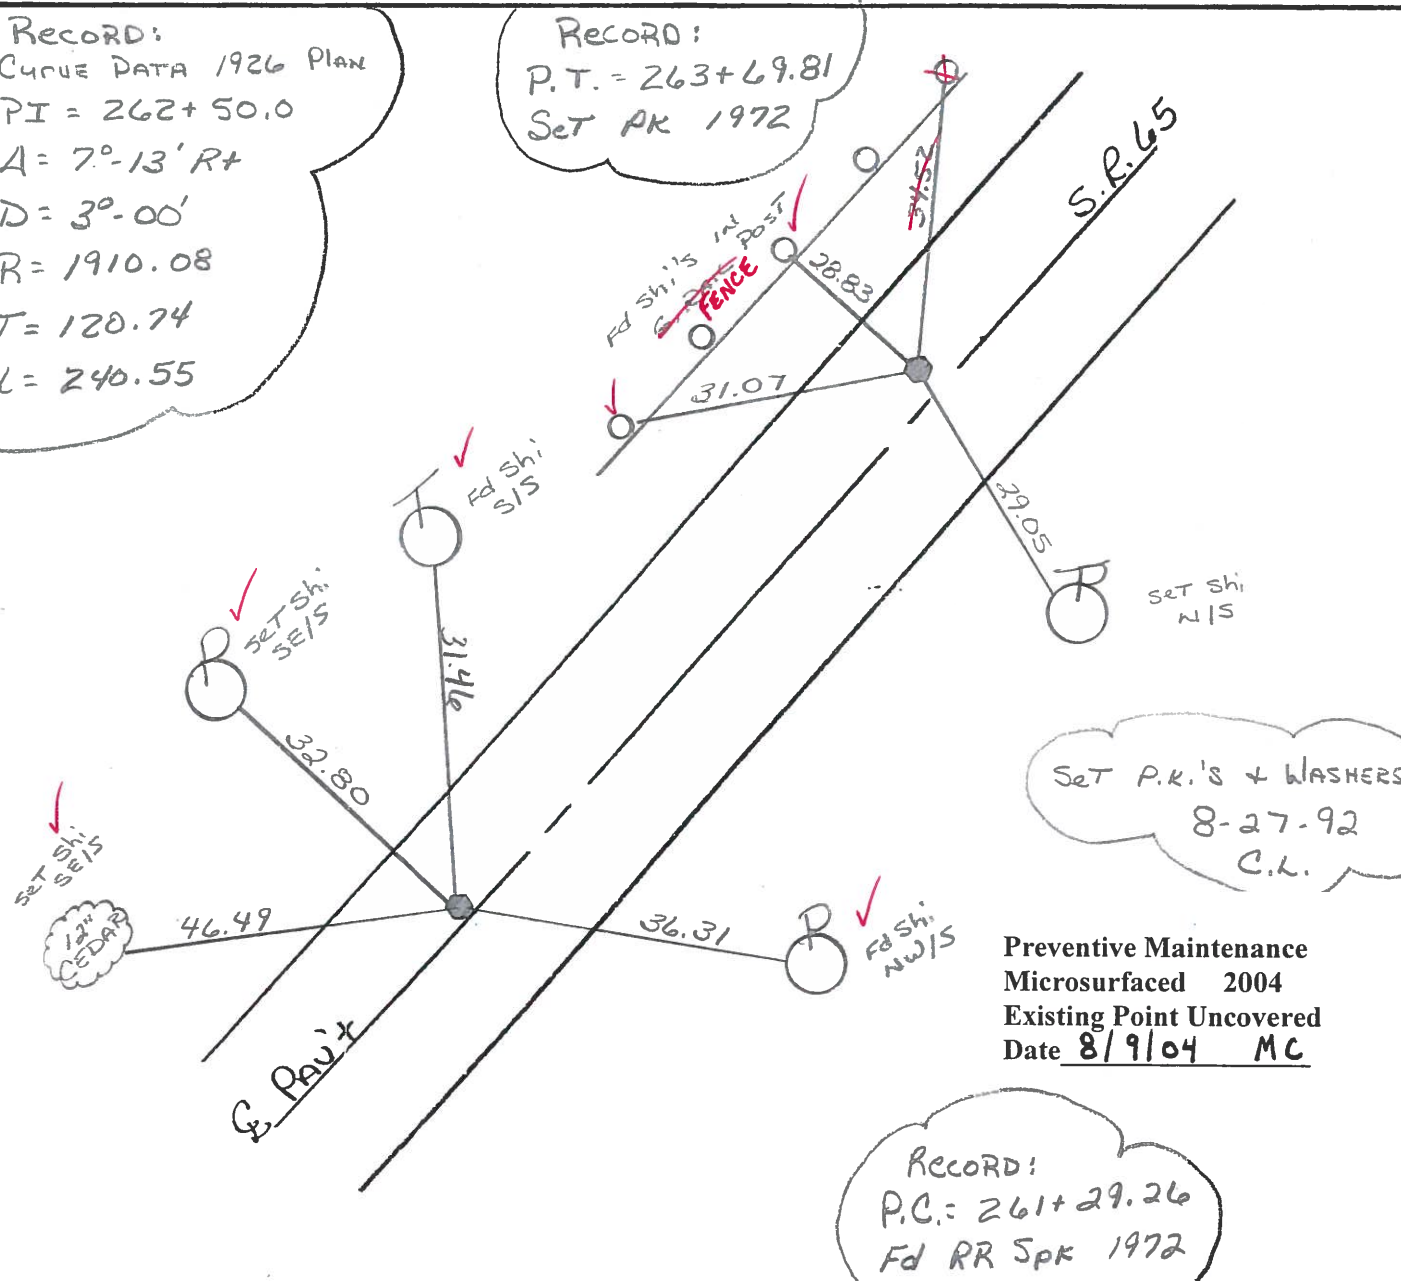 Record:
Curve Data 1926 Plan
PI = 262+50.0
Δ = 7°-13' Rt
D = 3°-00'
R = 1910.08
T = 120.74
L = 240.55
Record:
P.T. = 263+69.81
Set PK 1972
S.R. 65
34.52
Fd Shi's in
Post
FENCE
28.83
31.07
29.05
Set Shi
N/S
T
Fd Shi
S/S
31.46
P
Set Shi
SE/S
32.80
Set Shi
SE/S
12"
CEDAR
46.49
36.31
P
Fd Shi
NW/S
℄ Pav't
Set P.K.'s + Washers
8-27-92
C.L.
Preventive Maintenance
Microsurfaced 2004
Existing Point Uncovered
Date 8/9/04 MC
Record:
P.C. = 261+29.26
Fd RR Spk 1972